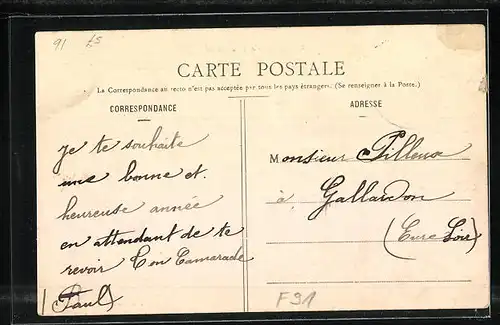 91 LS
CARTE POSTALE
La Correspondance au recto n'est pas acceptée par tous les pays étrangers. (Se renseigner à la Poste.)
CORRESPONDANCE
Je te souhaite
une bonne et
heureuse année
en attendant de te
revoir Ton Camarade
Paul
ADRESSE
Monsieur Pilleux
à Gallardon
(Eure Loir)
F91